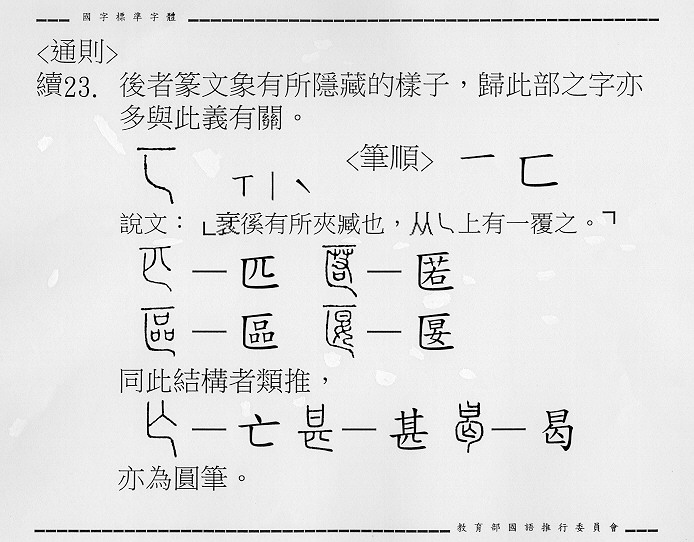 國字標準字體
<通則>
續23. 後者篆文象有所隱藏的樣子，歸此部之字亦
多與此義有關。
<筆順>
說文：「衺徯有所夾臧也，从乚上有一覆之。」
匹 匿
區 匽
同此結構者類推，
亡 甚 曷
亦為圓筆。
教育部國語推行委員會